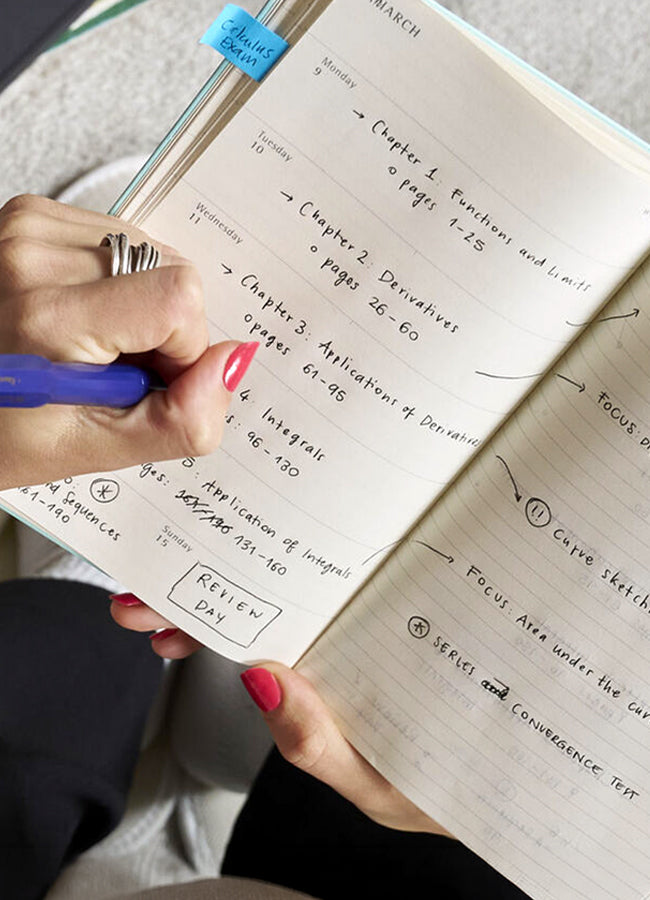 Calculus
Exam
MARCH
Monday
9
→ Chapter 1: Functions and Limits
o pages 1-25
Tuesday
10
→ Chapter 2: Derivatives
o pages 26-60
Wednesday
11
→ Chapter 3: Applications of Derivatives
o pages 61-95
4: Integrals
s: 96-130
5: Application of Integrals
ges: 131-160
nd Sequences
161-190
Sunday
15
REVIEW
DAY
FOCUS:
!! Curve sketchi
FOCUS: Area under the cur
* SERIES and CONVERGENCE TEST